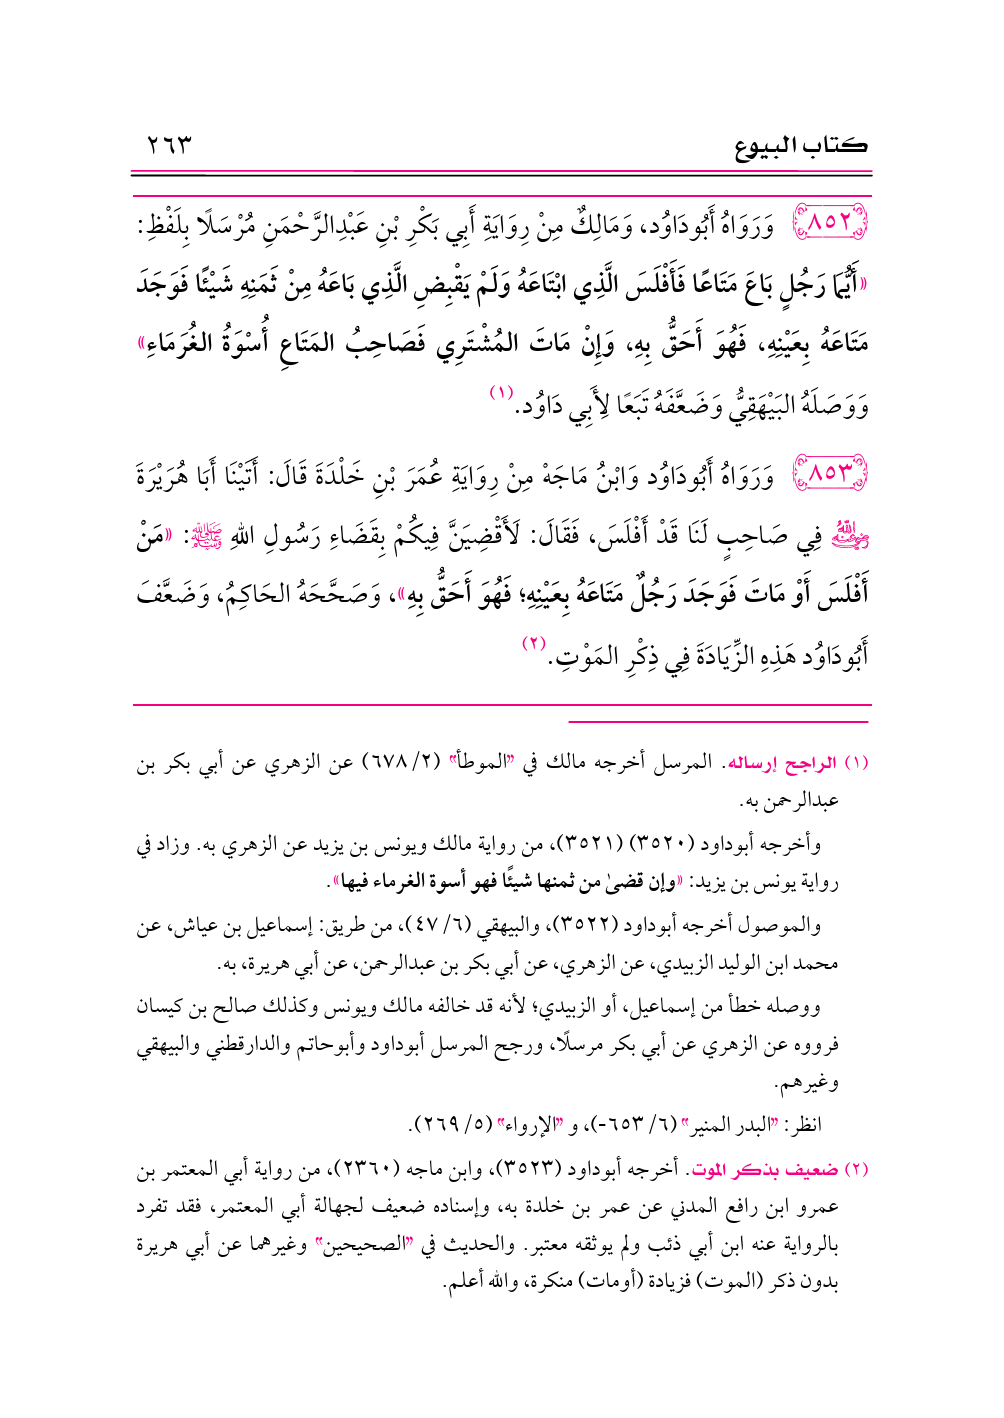 كتاب البيوع ٢٦٣
٨٥٢ وَرَوَاهُ أَبُودَاوُد، وَمَالِكٌ مِنْ رِوَايَةِ أَبِي بَكْرِ بْنِ عَبْدِالرَّحْمَنِ مُرْسَلًا بِلَفْظِ:
«أَيُّمَا رَجُلٍ بَاعَ مَتَاعًا فَأَفْلَسَ الَّذِي ابْتَاعَهُ وَلَمْ يَقْبِضِ الَّذِي بَاعَهُ مِنْ ثَمَنِهِ شَيْئًا فَوَجَدَ
مَتَاعَهُ بِعَيْنِهِ، فَهُوَ أَحَقُّ بِهِ، وَإِنْ مَاتَ المُشْتَرِي فَصَاحِبُ المَتَاعِ أُسْوَةُ الغُرَمَاءِ»
وَوَصَلَهُ البَيْهَقِيُّ وَضَعَّفَهُ تَبَعًا لِأَبِي دَاوُد.(١)
٨٥٣ وَرَوَاهُ أَبُودَاوُد وَابْنُ مَاجَهْ مِنْ رِوَايَةِ عُمَرَ بْنِ خَلْدَةَ قَالَ: أَتَيْنَا أَبَا هُرَيْرَةَ
رضي الله عنه فِي صَاحِبٍ لَنَا قَدْ أَفْلَسَ، فَقَالَ: لَأَقْضِيَنَّ فِيكُمْ بِقَضَاءِ رَسُولِ اللهِ ﷺ: «مَنْ
أَفْلَسَ أَوْ مَاتَ فَوَجَدَ رَجُلٌ مَتَاعَهُ بِعَيْنِهِ؛ فَهُوَ أَحَقُّ بِهِ»، وَصَحَّحَهُ الحَاكِمُ، وَضَعَّفَ
أَبُودَاوُد هَذِهِ الزِّيَادَةَ فِي ذِكْرِ المَوْتِ.(٢)
(١) الراجح إرساله. المرسل أخرجه مالك في "الموطأ" (٢/ ٦٧٨) عن الزهري عن أبي بكر بن
عبدالرحمن به.
وأخرجه أبوداود (٣٥٢٠) (٣٥٢١)، من رواية مالك ويونس بن يزيد عن الزهري به. وزاد في
رواية يونس بن يزيد: «وإن قضىٰ من ثمنها شيئًا فهو أسوة الغرماء فيها».
والموصول أخرجه أبوداود (٣٥٢٢)، والبيهقي (٦/ ٤٧)، من طريق: إسماعيل بن عياش، عن
محمد ابن الوليد الزبيدي، عن الزهري، عن أبي بكر بن عبدالرحمن، عن أبي هريرة، به.
ووصله خطأ من إسماعيل، أو الزبيدي؛ لأنه قد خالفه مالك ويونس وكذلك صالح بن كيسان
فرووه عن الزهري عن أبي بكر مرسلًا، ورجح المرسل أبوداود وأبوحاتم والدارقطني والبيهقي
وغيرهم.
انظر: "البدر المنير" (٦/ ٦٥٣-)، و "الإرواء" (٥/ ٢٦٩).
(٢) ضعيف بذكر الموت. أخرجه أبوداود (٣٥٢٣)، وابن ماجه (٢٣٦٠)، من رواية أبي المعتمر بن
عمرو ابن رافع المدني عن عمر بن خلدة به، وإسناده ضعيف لجهالة أبي المعتمر، فقد تفرد
بالرواية عنه ابن أبي ذئب ولم يوثقه معتبر. والحديث في "الصحيحين" وغيرهما عن أبي هريرة
بدون ذكر (الموت) فزيادة (أومات) منكرة، والله أعلم.